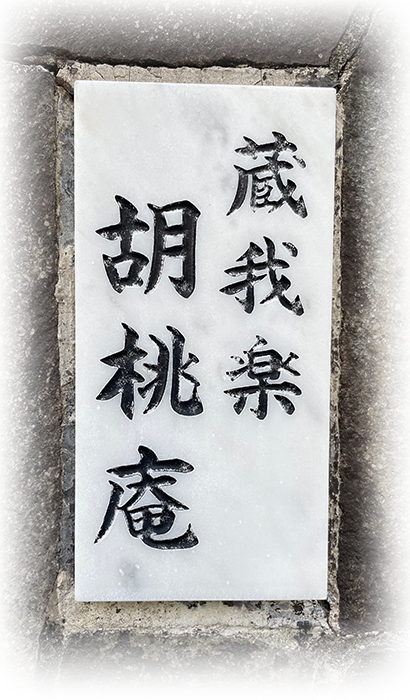 蔵我楽
胡桃庵